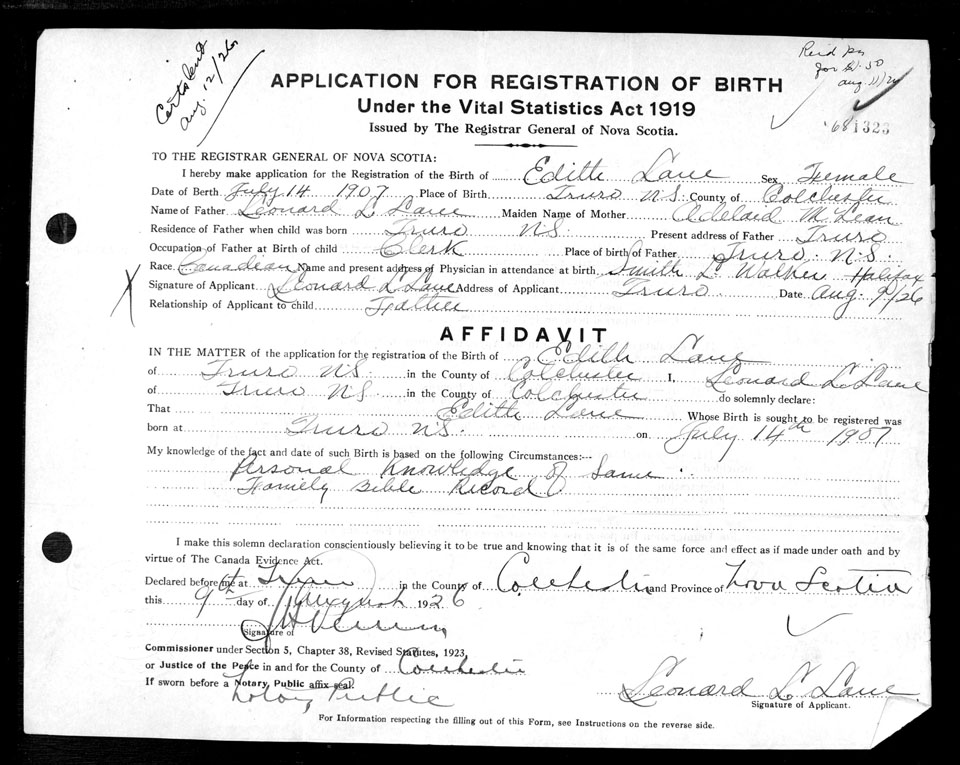 Cert Send
Aug. 12/26
Aug 11/26
681323
APPLICATION FOR REGISTRATION OF BIRTH
Under the Vital Statistics Act 1919
Issued by The Registrar General of Nova Scotia.
TO THE REGISTRAR GENERAL OF NOVA SCOTIA:
I hereby make application for the Registration of the Birth of Edith Lane Sex Female
Date of Berth July 14 1907 Place of Birth Truro N.S. County of Colchester
Name of Father Leonard L Lane Maiden Name of Mother Adelaid McLean
Residence of Father when child was born Truro N.S. Present address of Father Truro
Occupation of Father at Birth of child Clerk Place of birth of Father Truro N.S.
Race Canadian Name and present address of Physician in attendance at birth Smith L. Walker Halifax
Signature of Applicant Leonard L Lane Address of Applicant Truro Date Aug 9/26
Relationship of Applicant to child Father
AFFIDAVIT
IN THE MATTER of the application for the registration of the Birth of Edith Lane
of Truro N.S. in the County of Colchester I, Leonard L. Lane
of Truro N.S. in the County of Colchester do solemnly declare:
That Edith Lane Whose Birth is sought to be registered was
born at Truro N.S. on July 14th 1907
My knowledge of the fact and date of such Birth is based on the following Circumstances:--
Personal Knowledge of Same
Family Bible Record
I make this solemn declaration conscientiously believing it to be true and knowing that it is of the same force and effect as if made under oath and by
virtue of The Canada Evidence Act.
Declared before me at Truro in the County of Colchester and Province of Nova Scotia
this 9th day of August 1926
Signature of
Commissioner under Section 5, Chapter 38, Revised Statutes, 1923,
or Justice of the Peace in and for the County of Colchester
If sworn before a Notary Public affix seal.
Notary Public
Leonard L. Lane
Signature of Applicant.
For Information respecting the filling out of this Form, see Instructions on the reverse side.